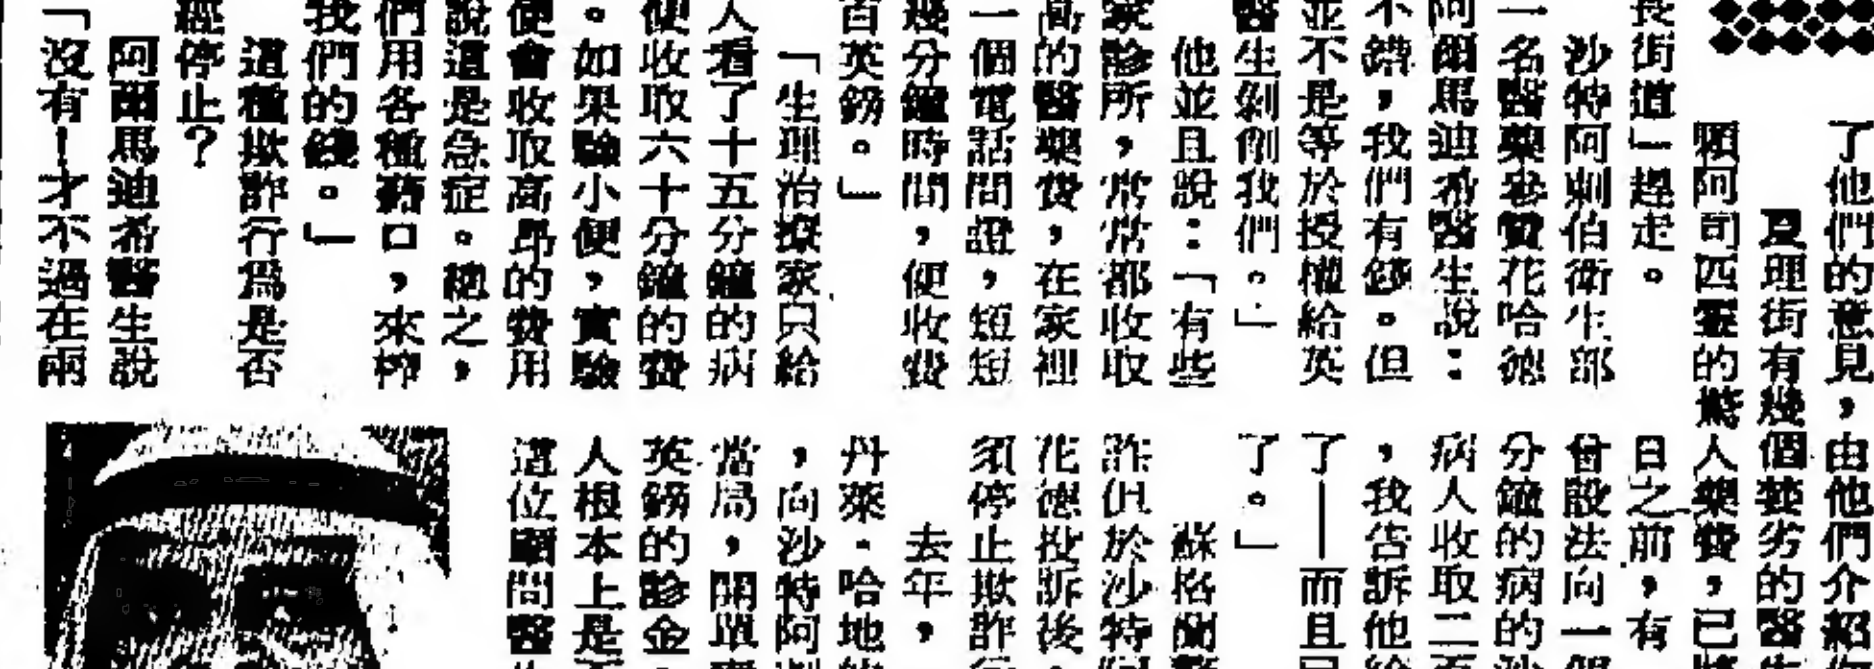 了他們的意見，由他們介紹
夏理街有幾個獎劣的醫
頓阿司匹靈的驚人藥費，已
長街道」趕走。
沙特阿剌伯衛生部
一名醫藥參贊花哈德
阿爾馬迪希醫生說：
不錯，我們有錢。但
並不是等於授權給英
醫生剝削我們。」
他並且說：「有些
家診所，常常都收取
高的醫藥費，在家裡
一個電話問證，短短
幾分鐘時間，便收費
百英鎊。」
「生理治療家只給
人看了十五分鐘的病
便收取六十分鐘的費
。如果驗小便，實驗
便會收取高昂的費用
說這是急症。總之，
們用各種藉口，來榨
我們的錢。」
這種欺詐行爲是否
經停止？
阿爾馬迪希醫生說
「沒有！才不過在兩
日之前，有
曾設法向一個
分鐘的病的沙
病人收取二百
，我告訴他給
了——而且
了。」
蘇格蘭
詐但於沙特
花德投訴後，
須停止欺詐行
去年，
丹萊·哈地
，向沙特阿剌
當局，開單
英鎊的診金。
人根本上是
這位顧問醫